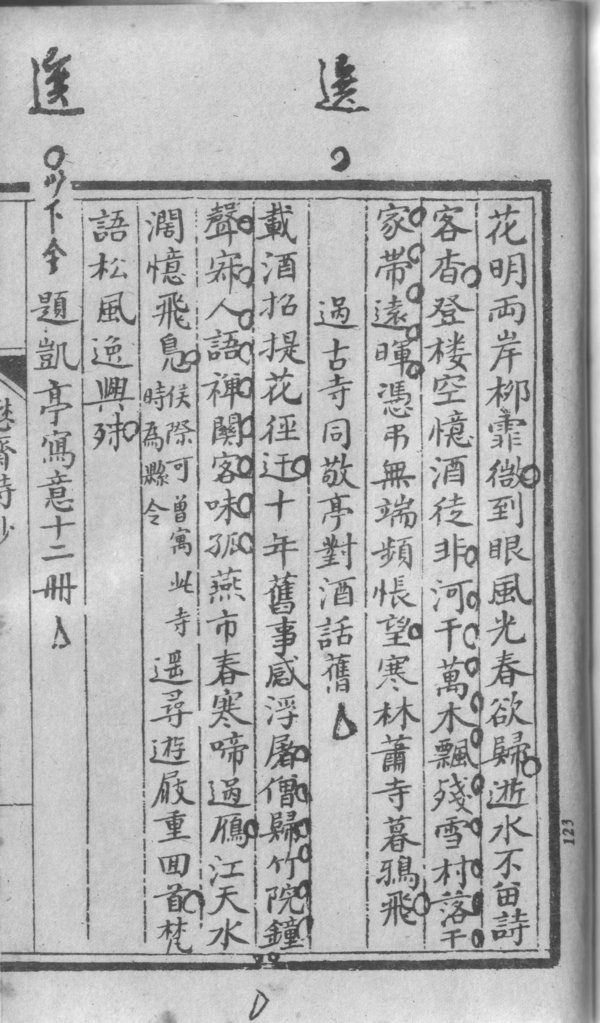 選
選
花明兩岸柳霏微到眼風光春欲歸逝水不留詩
客杳登楼空憶酒徒非河干萬木飄殘雪村落千
家帶遠暉憑弔無端頻悵望寒林蕭寺暮鴉飛
過古寺同敬亭對酒話舊
載酒招提花徑迂十年舊事感浮屠僧歸竹院鐘
聲寂人語禅關客味孤燕市春寒啼過鴈江天水
濶憶飛鳧
侯際可曾寓此寺
時為縣令
遥尋遊屐重回首梵
語松風逸興殊
以下全
題凱亭寫意十二冊
懋齋詩鈔
123